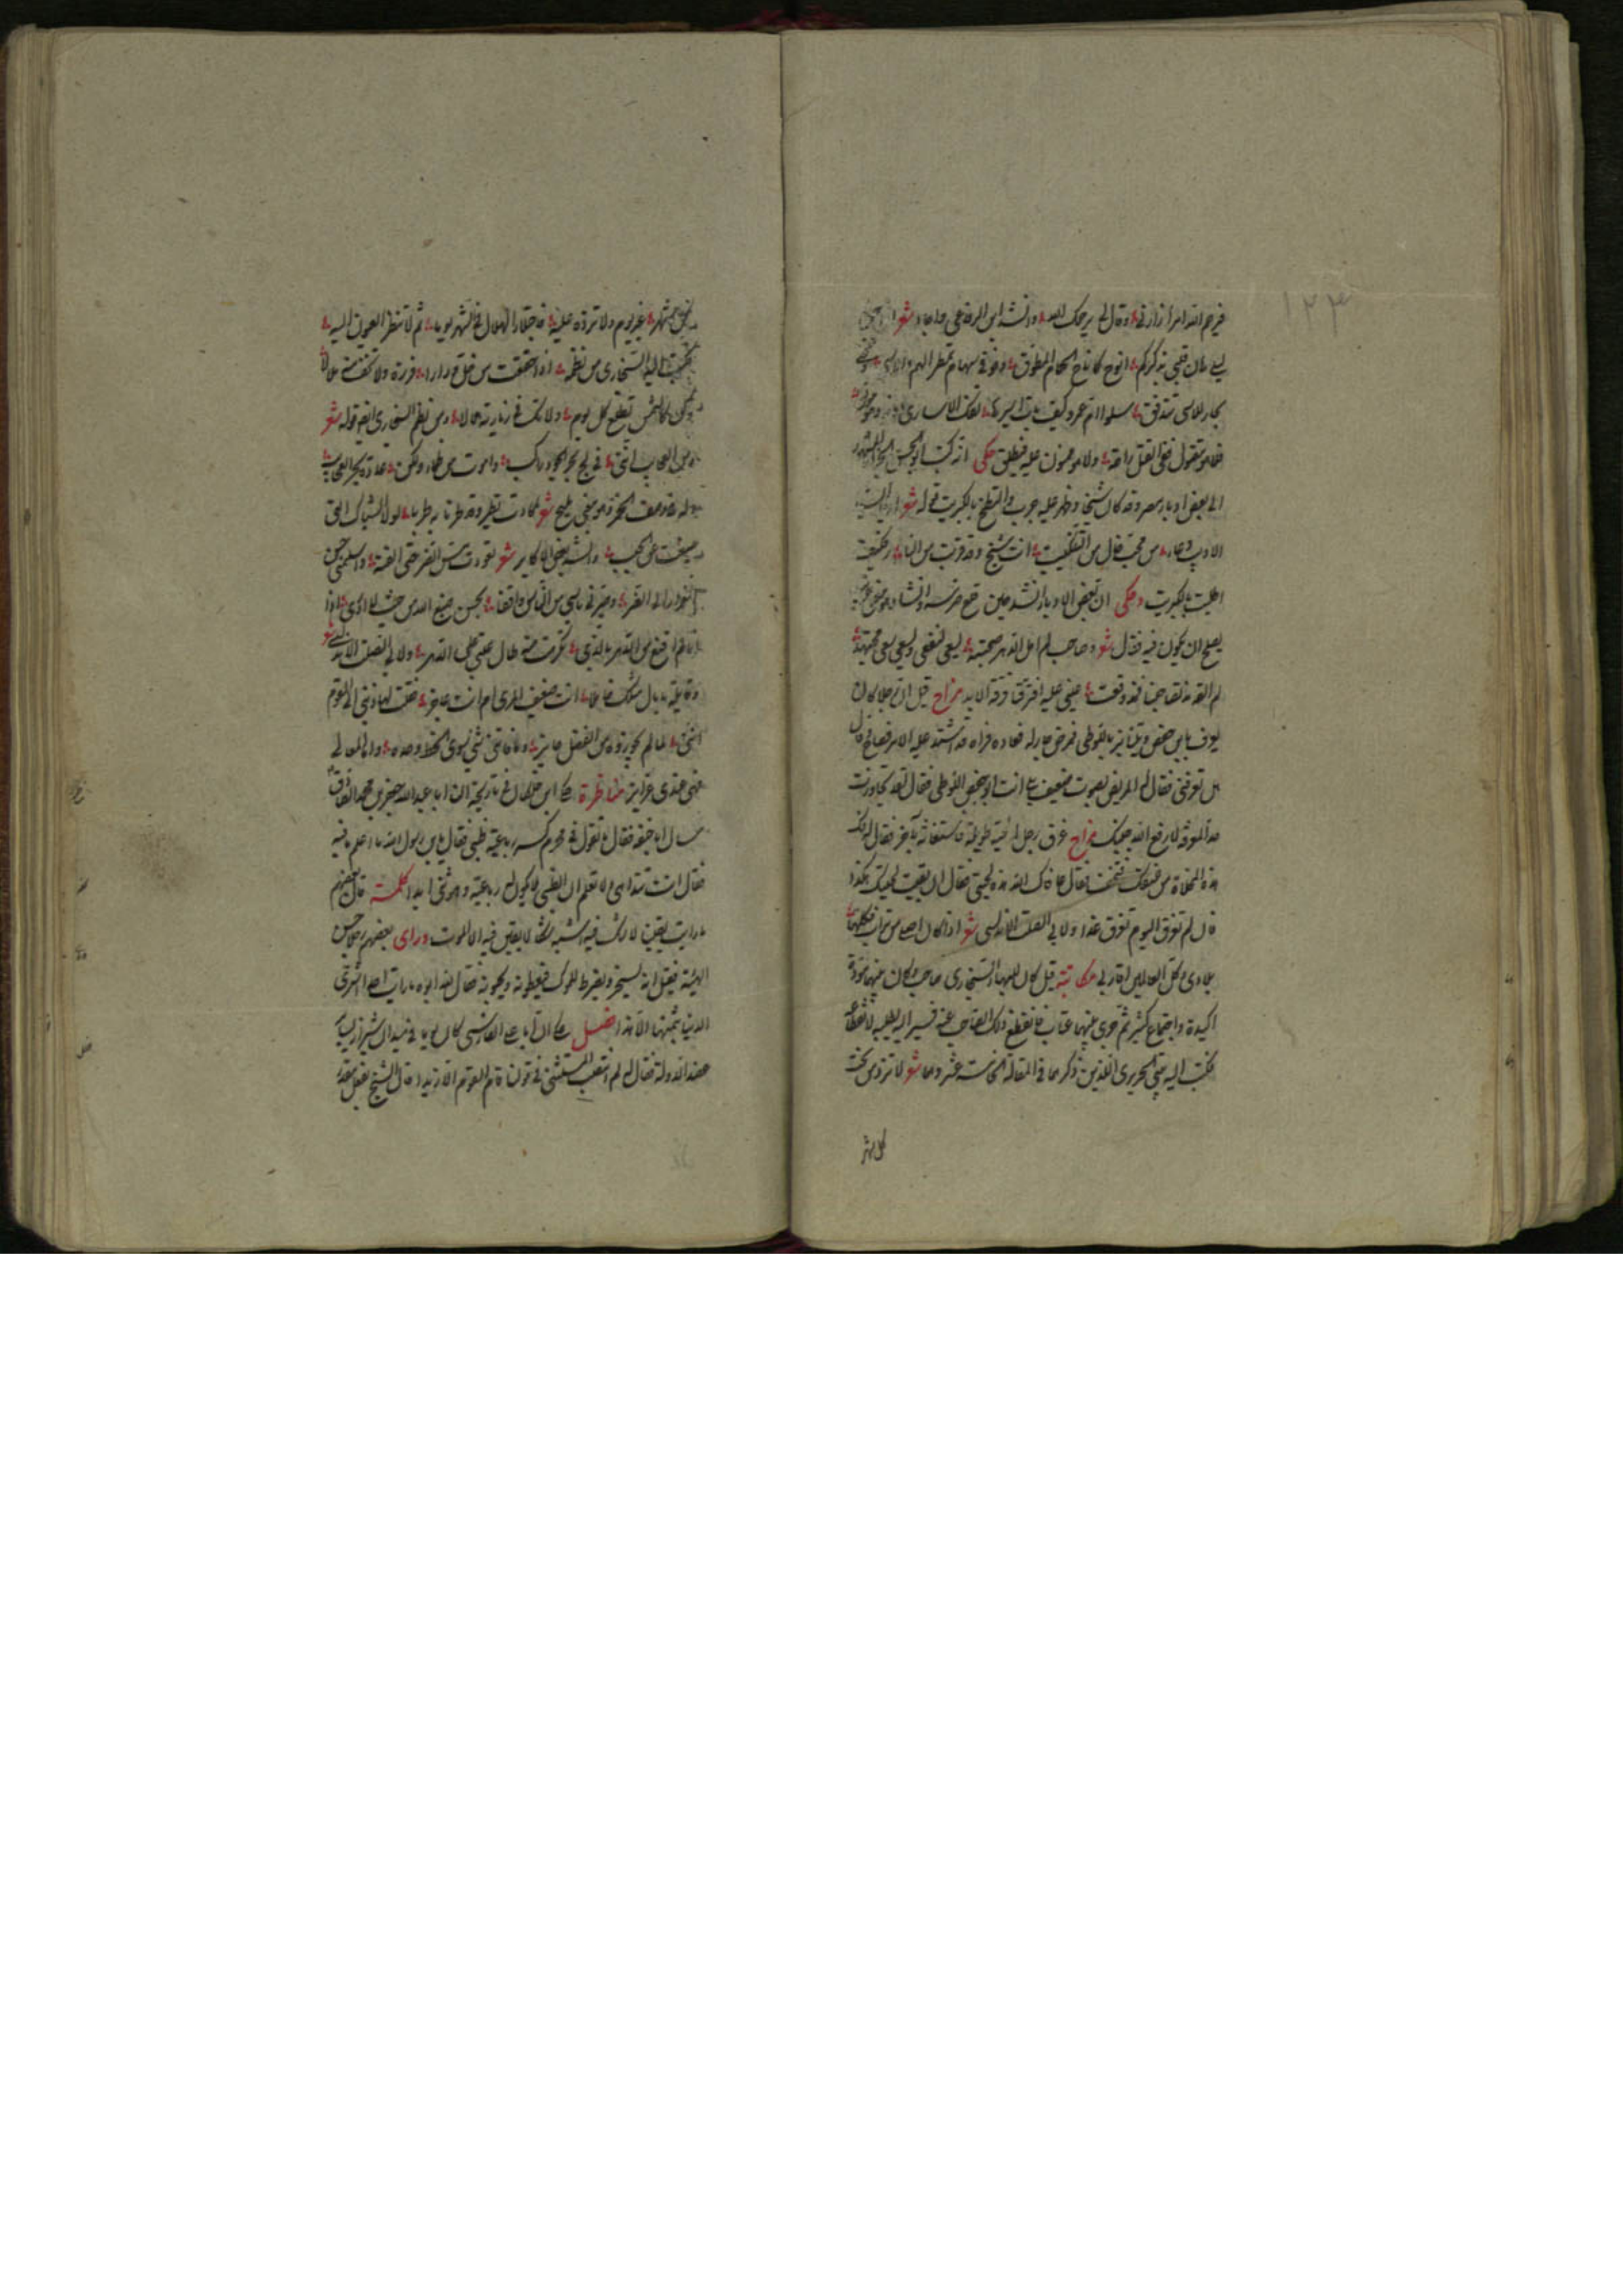 ١٣٣
فرحم الله امرأ زارني وقال لي يرحمك الله وانشد ابن الرفاعي شعر اذا جن
ليلي هام قلبي بذكركم انوح كما ناح الحمام المطوق وفوقي سحاب تمطر الهم والاسى وتحتي
بحار للاسى تتدفق سلوا ام عمرو كيف بات اسيرها تفك الاسارى دونه وهو موثق
فلا هو مقتول ففي القتل راحة ولا هو ممنون عليه فيطلق حكى انه كتب ابو الحسين الجزار
الى بعض ادباء مصر وقد كان شيخا وظهر عليه جرب فالتطخ بالكبريت قوله شعر ايها السيد
الاديب دعاء من محب خال من التنكيت انت شيخ وقد قربت من النار فكيف
اطليت بالكبريت وحكي ان بعض الادباء انشد حين قلع ضرسه وانشاد
يصلح ان يكون فيه فقال شعر وصاحب لم امل الدهر صحبته يسعى لنفعي ويسعى سعي مجتهد
لم القه مذ تصاحبنا فمذ وقعت عيني عليه افترقنا فرقة الابد مزاح قيل ان رجلا كان
يعرف بابي حفص ويلقب باللوطي فمرض جار له فعاده فرآه قد اشتد عليه الامر فصاح قال
هل تعرفني فقال له المريض بصوت ضعيف بلى انت ابو حفص اللوطي فقال لقد تجاوزت
حد المعرفة لا رفع الله جنبك مزاح غرق رجل لحيته طويلة فاستغاث بآخر فقال له فك
هذه المخلاة من عنقك فتخفف فقال عافاك الله هذه لحيتي فقال ان بقيت لحيتك هكذا
فان لم تغرق اليوم تغرق غدا ولابي الصلت الاندلسي شعر اذا كان اصلي من تراب فكلها
بلادي وكل العالمين اقاربي مكاتبة قيل كان للبهاء السنجاري صاحب وكان بينهما مودة
اكيدة واجتماع كثير ثم جرى بينهما عتاب فانقطع ذلك الصاحب عنه فسير اليه يطلبه لانقطاعه
فكتب اليه بيتي الحريري اللذين ذكرهما في المقالة الخامسة عشر وهما شعر لا تزر من تحب
كل شهر
في كل شهر غير يوم ولا تزده عليه فاجتلاء الهلال في الشهر يوما ثم لا تنظر العيون اليه
فكتب اليه السنجاري من نظمه اذا حققت من خل ودادا فزره ولا تخف منه ملالا
وكن كالشمس تطلع كل يوم ولا تك في زيارته هلالا ومن نظم السنجاري ايضا قوله شعر
ومن العجايب انني في لج بحر الجود راكب واموت من ظماء ولكن عادة بحر العجايب
وله في وصف الخمرة وهو معنى مليح شعر كادت تطير وقد طرنا بها طربا لولا الشباك التي
صيغت من الحبب وانشد بعض الاكابر شعر تعودت مس الضر حتى الفته واسلمني حسن
العزاء الى الصبر وصيرني ياسي من الناس واثقا بحسن صنيع الله من حيث لا ادري اذا
انا لم اقنع من الدهر بالذي تكرهت منه طال عتبي على الدهر ولابي الصلت الاندلسي شعر
وقايلة ما بال مثلك خاملا انت ضعيف الراي ام انت عاجز فقلت لها ذنبي الى القوم
انني لما لم يحوزوه من الفضل حايز وما فاتني شيء سوى الحظ وحده واما المعالي
فهي عندي غرايز مناظرة حكى ابن خلكان في تاريخه ان ابا عبد الله جعفر بن محمد الصادق
سال ابا حنيفة فقال ما تقول في محرم كسر رباعية ظبي فقال يا ابن رسول الله ما اعلم ما فيه
فقال انت تتداهى ولا تعلم ان الظبي لا يكون له رباعية وهو ثني ابدا كلمة قال بعضهم
ما رايت يقينا لا شك فيه اشبه بشك لا يقين فيه الا الموت وراى بعضهم رجلا حسن
الهيئة فقيل انه يسخر ويضرط للملوك فيعطونه ويحبونه فقال لله ابوه ما رايت احدا اشترى
الدنيا بثمنها الا هذا فصل حكى ان ابا علي الفارسي كان يوما في ميدان شيراز يساير
عضد الدولة فقال له لم انتصب المستثنى في قولنا قام القوم الا زيدا قال الشيخ بفعل مقدر